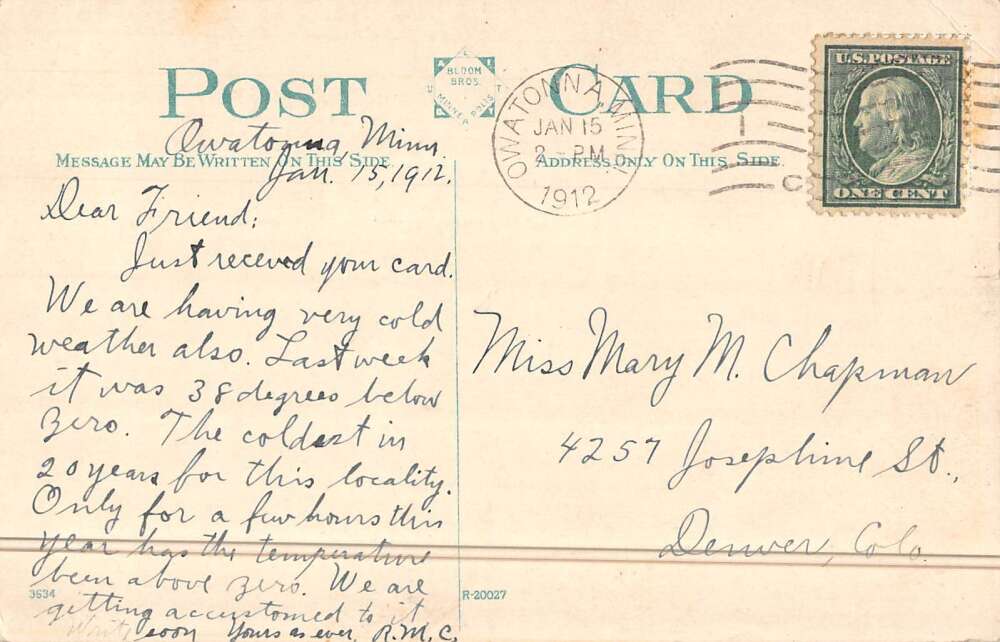 POST CARD
BLOOM BROS.
MINNEAPOLIS
U.S. POSTAGE
ONE CENT
OWATONNA, MINN.
JAN 15
2 - PM
1912
C
MESSAGE MAY BE WRITTEN ON THIS SIDE
ADDRESS ONLY ON THIS SIDE
Owatonna, Minn.
Jan. 15, 1912.
Dear Friend:
Just received your card.
We are having very cold
weather also. Last week
it was 38 degrees below
zero. The coldest in
20 years for this locality.
Only for a few hours this
year has the temperature
been above zero. We are
getting accustomed to it
Write soon Yours as ever, R.M.C.
3634
R-20027
Miss Mary M. Chapman
4257 Josephine St.,
Denver, Colo.